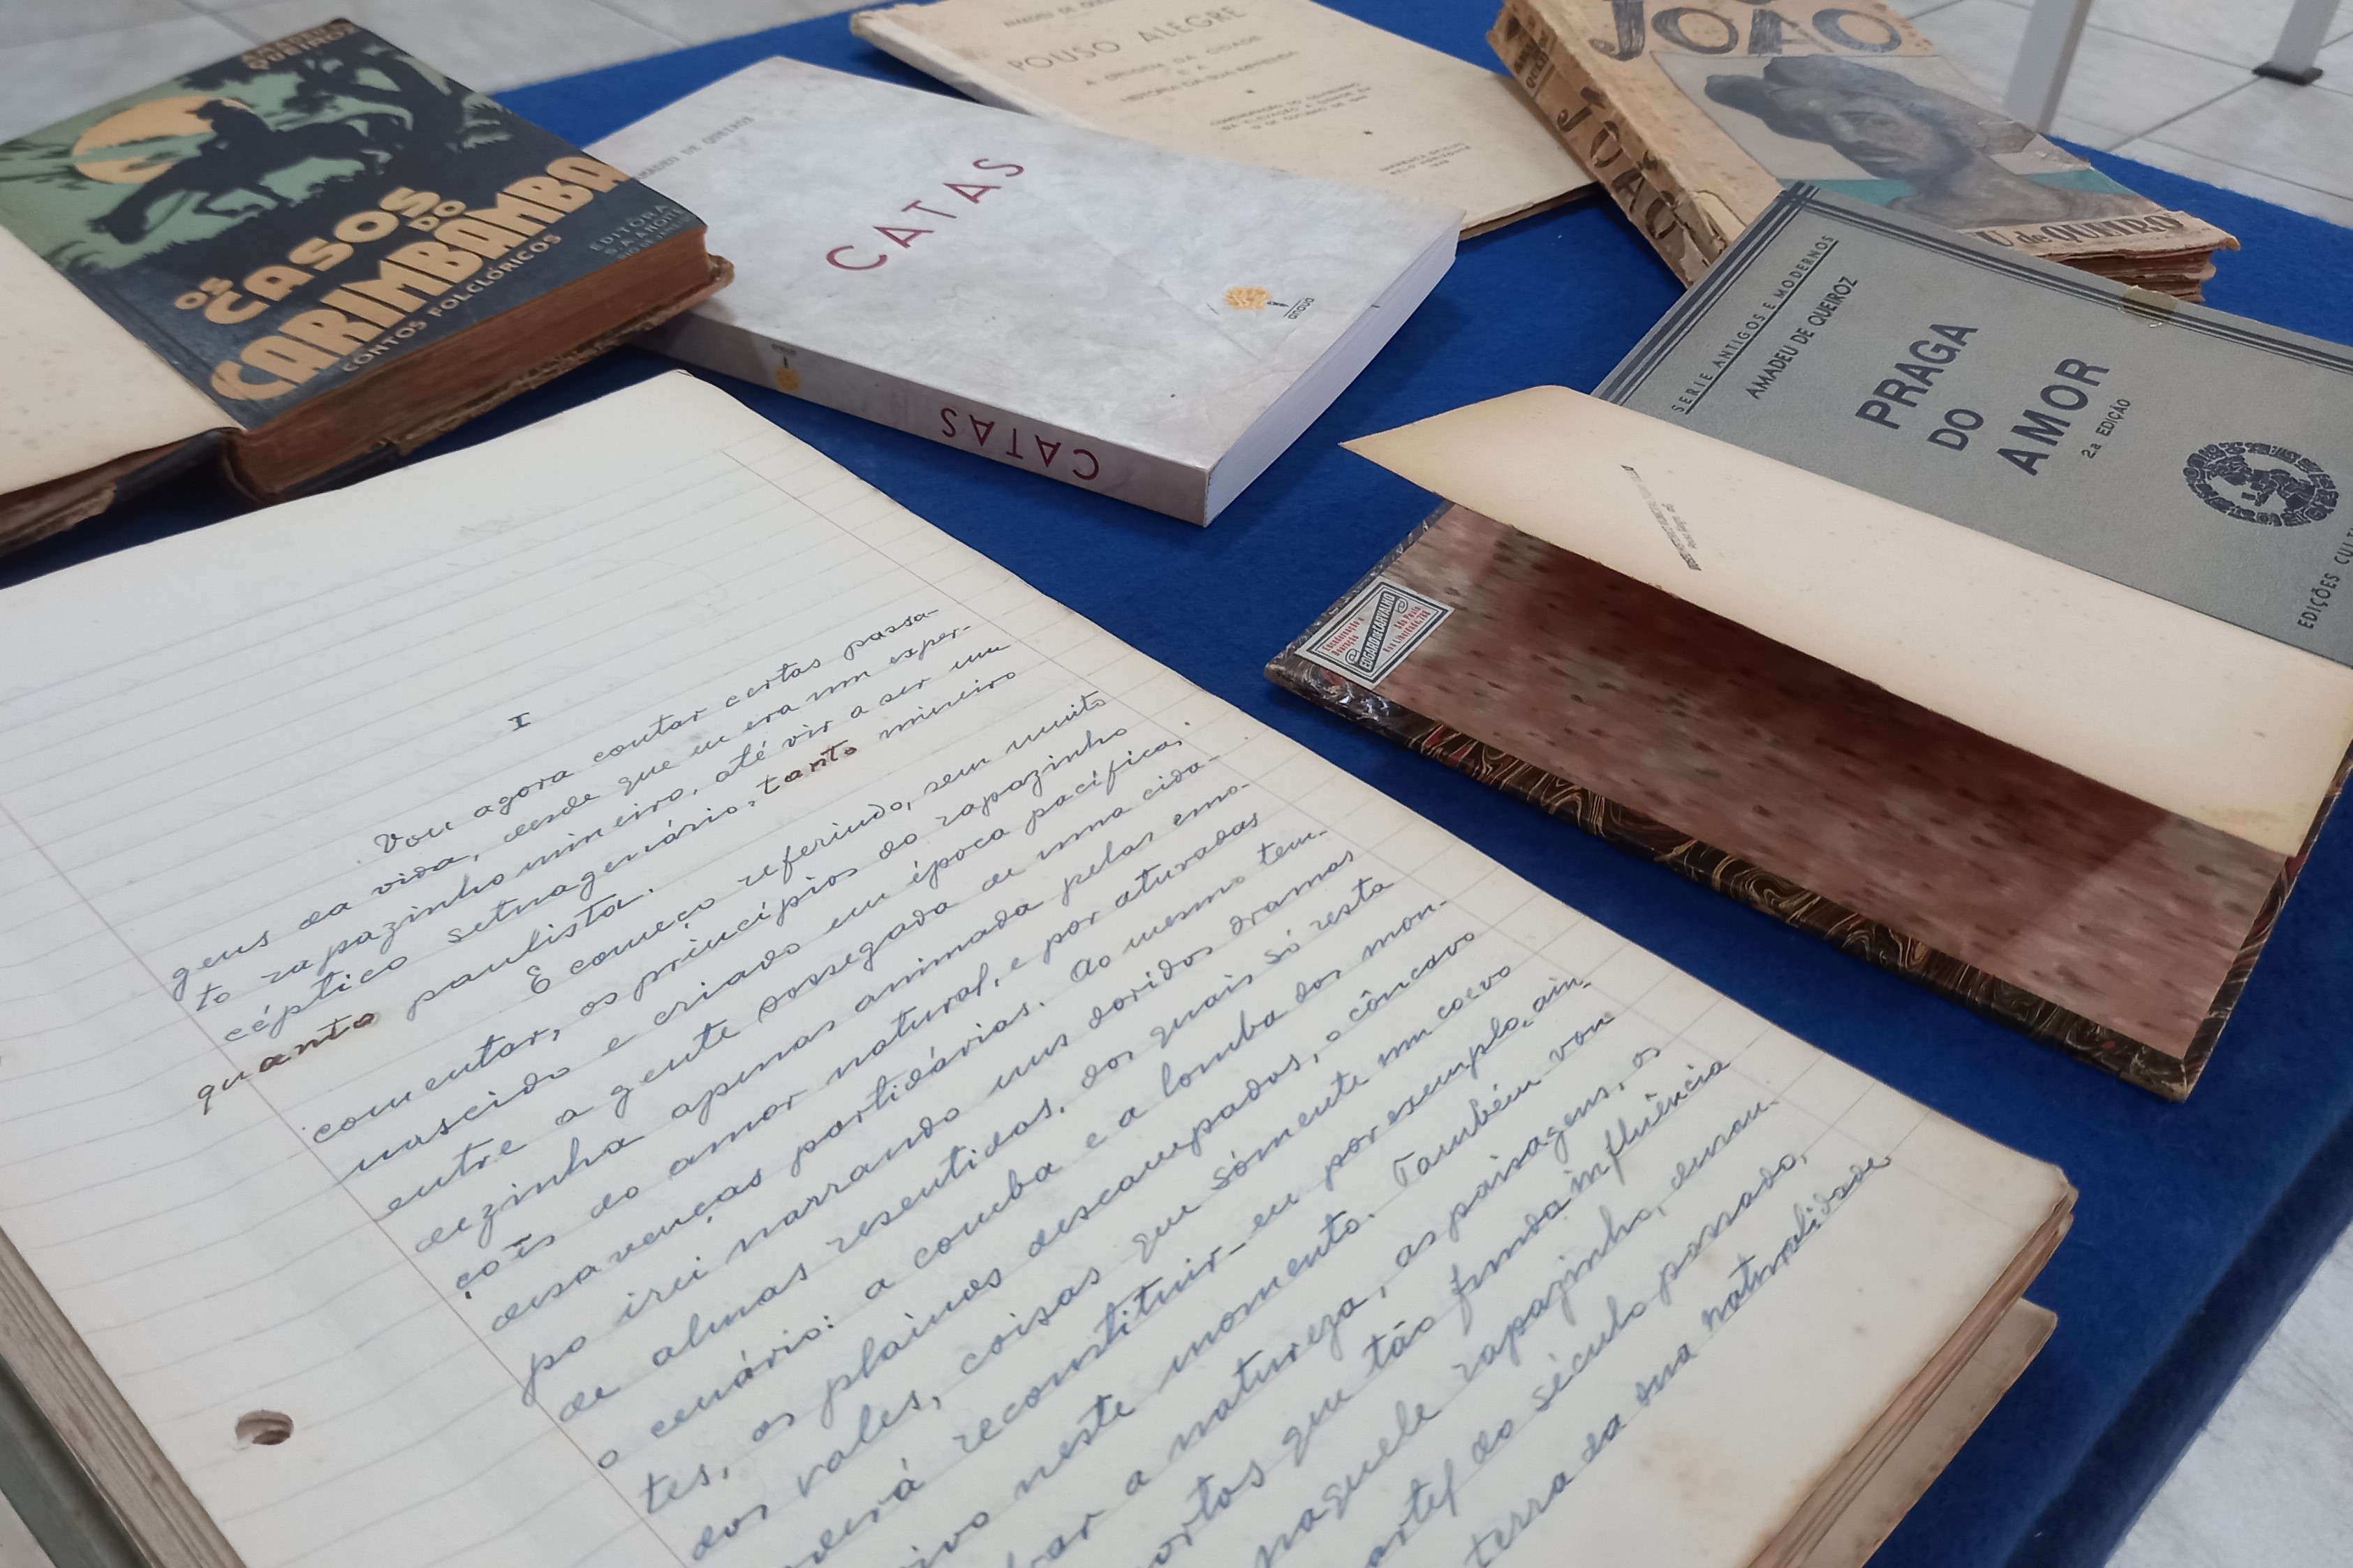 AMADEU
QUEIROZ
OS
CASOS
DO
CARIMBAMBA
CONTOS FOLCLÓRICOS
EDITÔRA
AMADEU DE QUEIROS
CATAS
CATAS
POUSO ALEGRE
A ORIGEM DA CIDADE
E A
HISTÓRIA DA SUA IMPRENSA
JOÃO
JOÃO
SERIE ANTIGOS E MODERNOS
AMADEU DE QUEIROZ
PRAGA
DO
AMOR
2a EDIÇÃO
EDIÇÕES CULT
EDGARD DE CARVALHO
São Paulo
I
Vou agora contar certas passa-
gens da vida, desde que eu era um exper-
to rapazinho mineiro, até vir a ser um
céptico setuagenário, tanto mineiro
quanto paulista.
E começo referindo, sem muito
comentar, os princípios do rapazinho
nascido e criado em época pacífica,
entre a gente sossegada de uma cida-
dezinha apenas animada pelas emo-
ções do amor natural, e por aturadas
desavenças partidárias. Ao mesmo tem-
po irei narrando uns doridos dramas
de almas resentidas, dos quais só resta
o cenário: a comba e a lomba dos mon-
tes, os plainos descampados, o côncavo
dos vales, coisas que sómente um coevo
poderá reconstituir_eu por exemplo, ain-
vivo neste momento. Também vou
a natureza, as paisagens, os
que tão funda influência
naquele rapazinho, duran-
do século passado,
terra da sua naturalidade